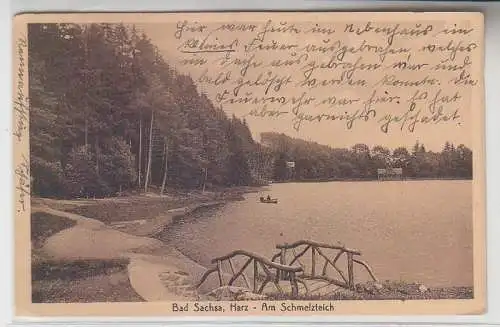 Hier war heute im Nebenhaus ein
kleines Feuer ausgebrochen, welches
im Dach ausgebrochen war und
bald gelöscht werden konnte. Die
Feuerwehr war hier. Es hat
aber garnichts geschadet.
Bad Sachsa, Harz - Am Schmelzteich